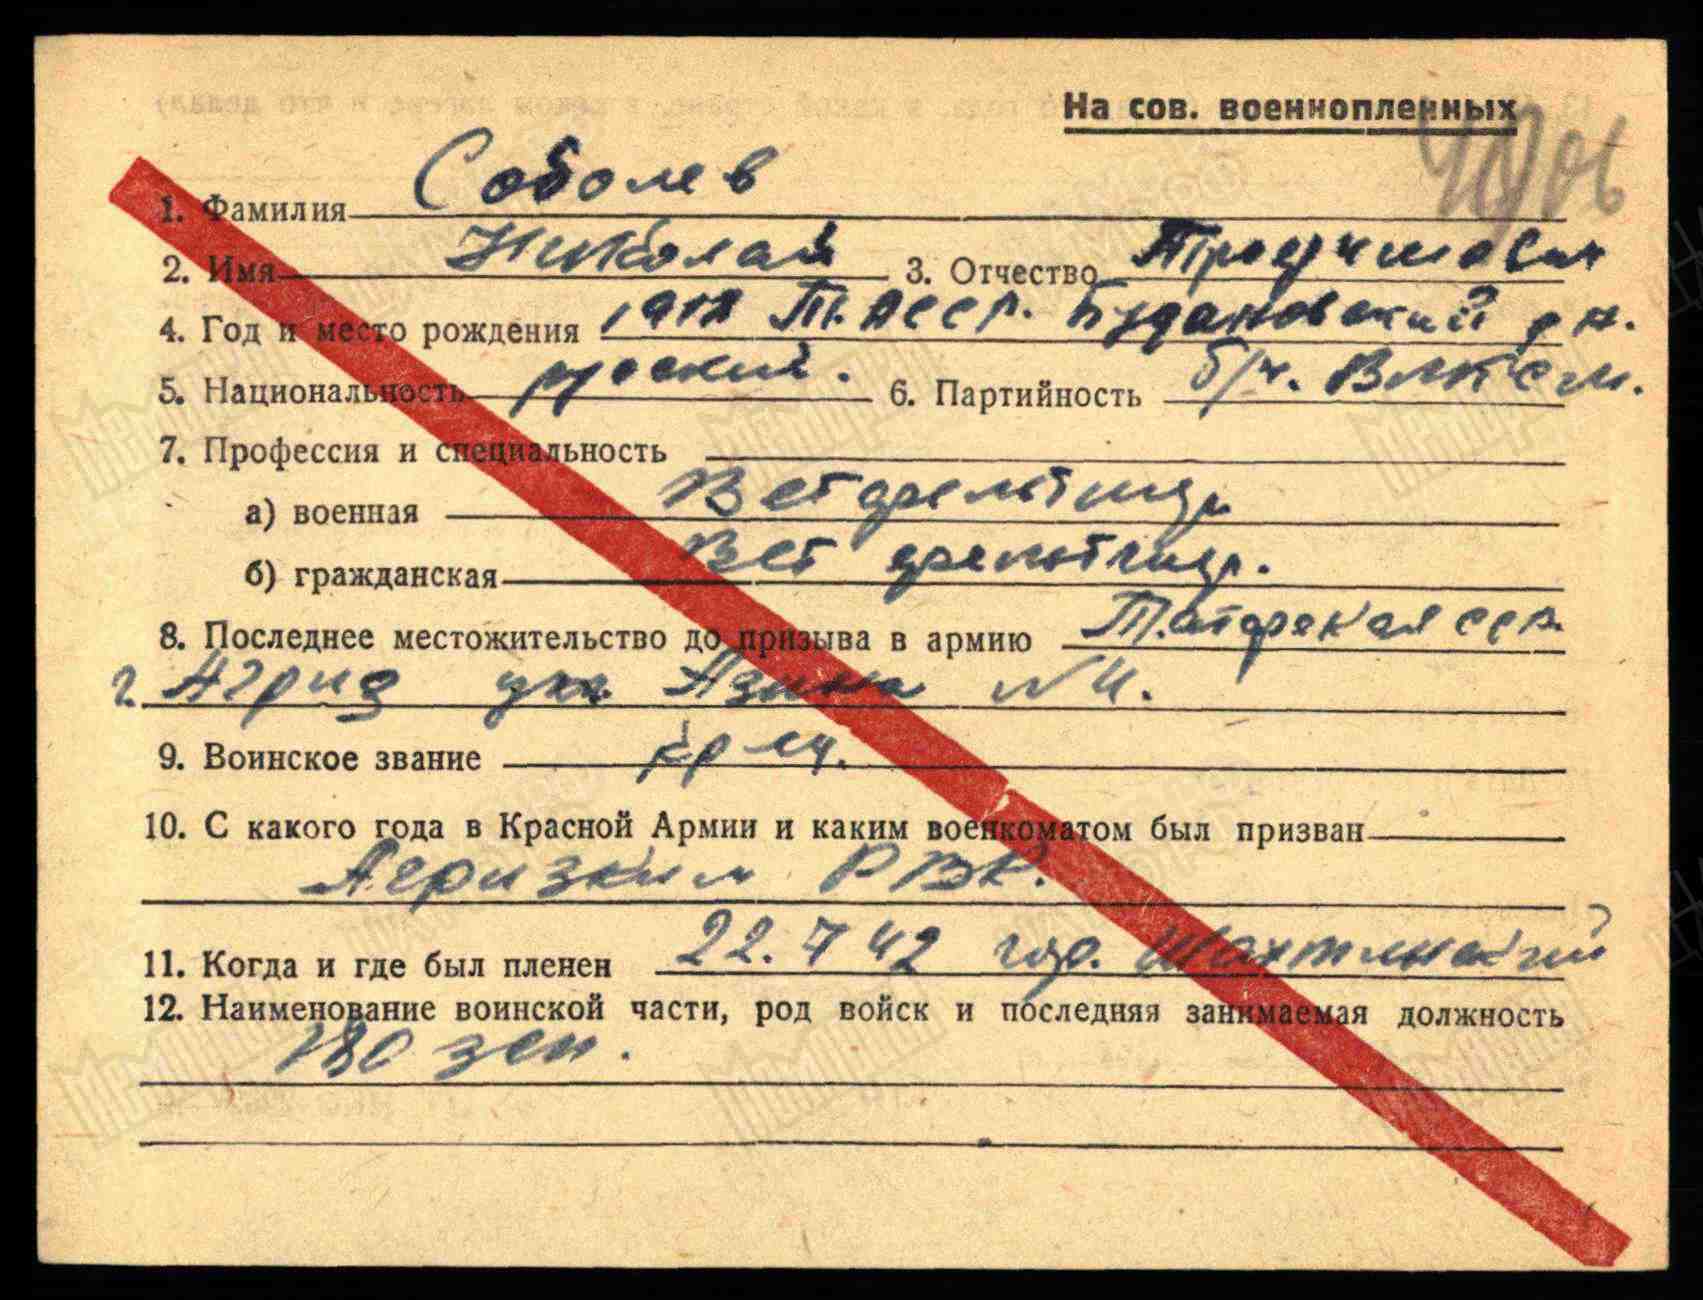 На сов. военнопленных
1. Фамилия Соболев
2. Имя Николай 3. Отчество Трофимович
4. Год и место рождения 1912 Т.АССР. р-н.
5. Национальность русский. 6. Партийность б/ч. ВЛКСМ.
7. Профессия и специальность
а) военная Ветфельдшер
б) гражданская Вет фельдшер.
8. Последнее местожительство до призыва в армию Татарская ССР.
г. Агриз ул. Азина № 4.
9. Воинское звание кр-ц.
10. С какого года в Красной Армии и каким военкоматом был призван
Агризким РВК.
11. Когда и где был пленен 22.7 42 год.
12. Наименование воинской части, род войск и последняя занимаемая должность
180 зен.